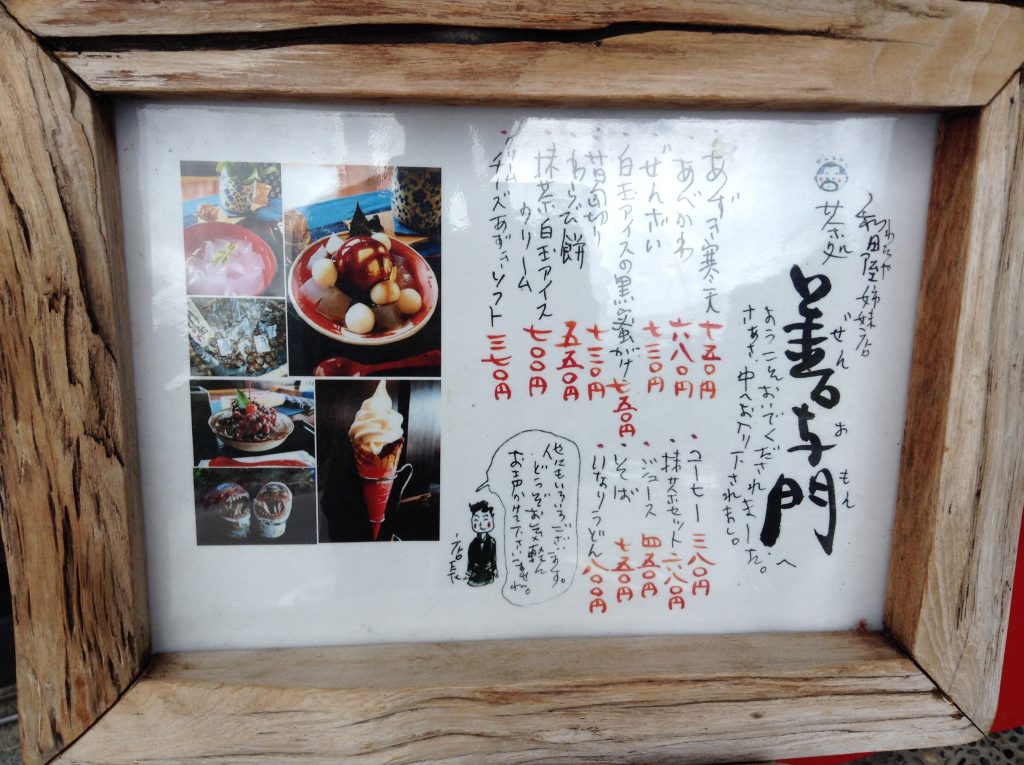 和田屋姉妹店
わだや
茶処
ぜんおもん
善右ヱ門へ
ようこそおいでくだされました。
さあさ、中へお入り下されませ。
・あずき寒天 七五〇円
・あべかわ 六八〇円
・ぜんざい 七三〇円
・白玉アイスの黒蜜がけ 七五〇円
・昔笛切り 七三〇円
・わらび餅 五五〇円
・抹茶白玉アイス
クリーム 七〇〇円
・クリームチーズあずきソフト 三七〇円
・コーヒー 三八〇円
・抹茶セット 六八〇円
・ジュース 四五〇円
・そば 七五〇円
・いなりうどん 八〇〇円
他にもいろいろございます。
どうぞお気軽に
お声かけて下さいませね。
店長